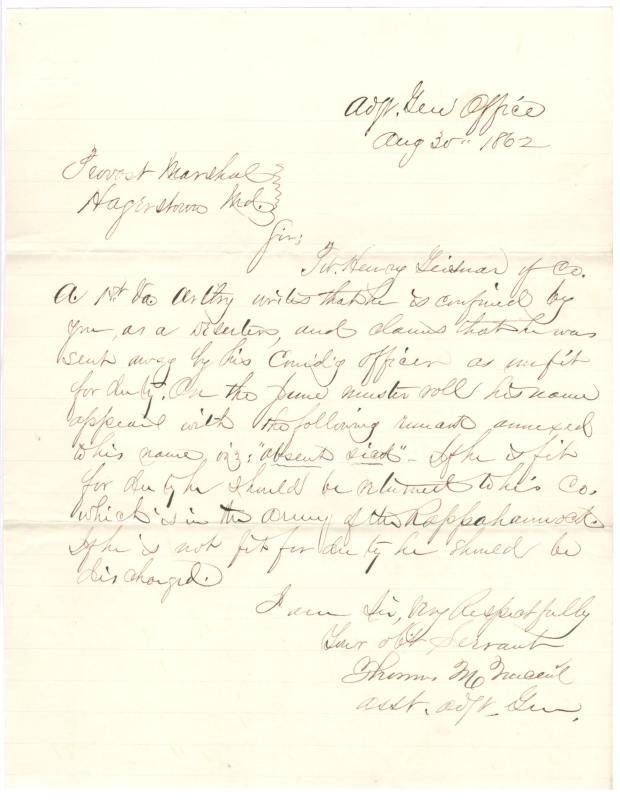 Adjt. Gen' Office
Aug 30" 1862
Provost Marshal
Hagerstown Md.
Sir;
Pvt. Henry of Co.
A 1st Va Artlry writes that he is confined by
you, as a Deserter, and claims that he was
sent away by his Comd'g officer as unfit
for duty. On the June muster roll his name
appears with the following remark annexed
to his name, viz: "absent sick" - If he is fit
for duty he should be returned to his Co.
which is in the Army of the Rappahannock.
If he is not fit for duty he should be
discharged.
I am Sir, Very Respectfully
Your obt Servant
Thomas M
Asst. Adjt. Gen.